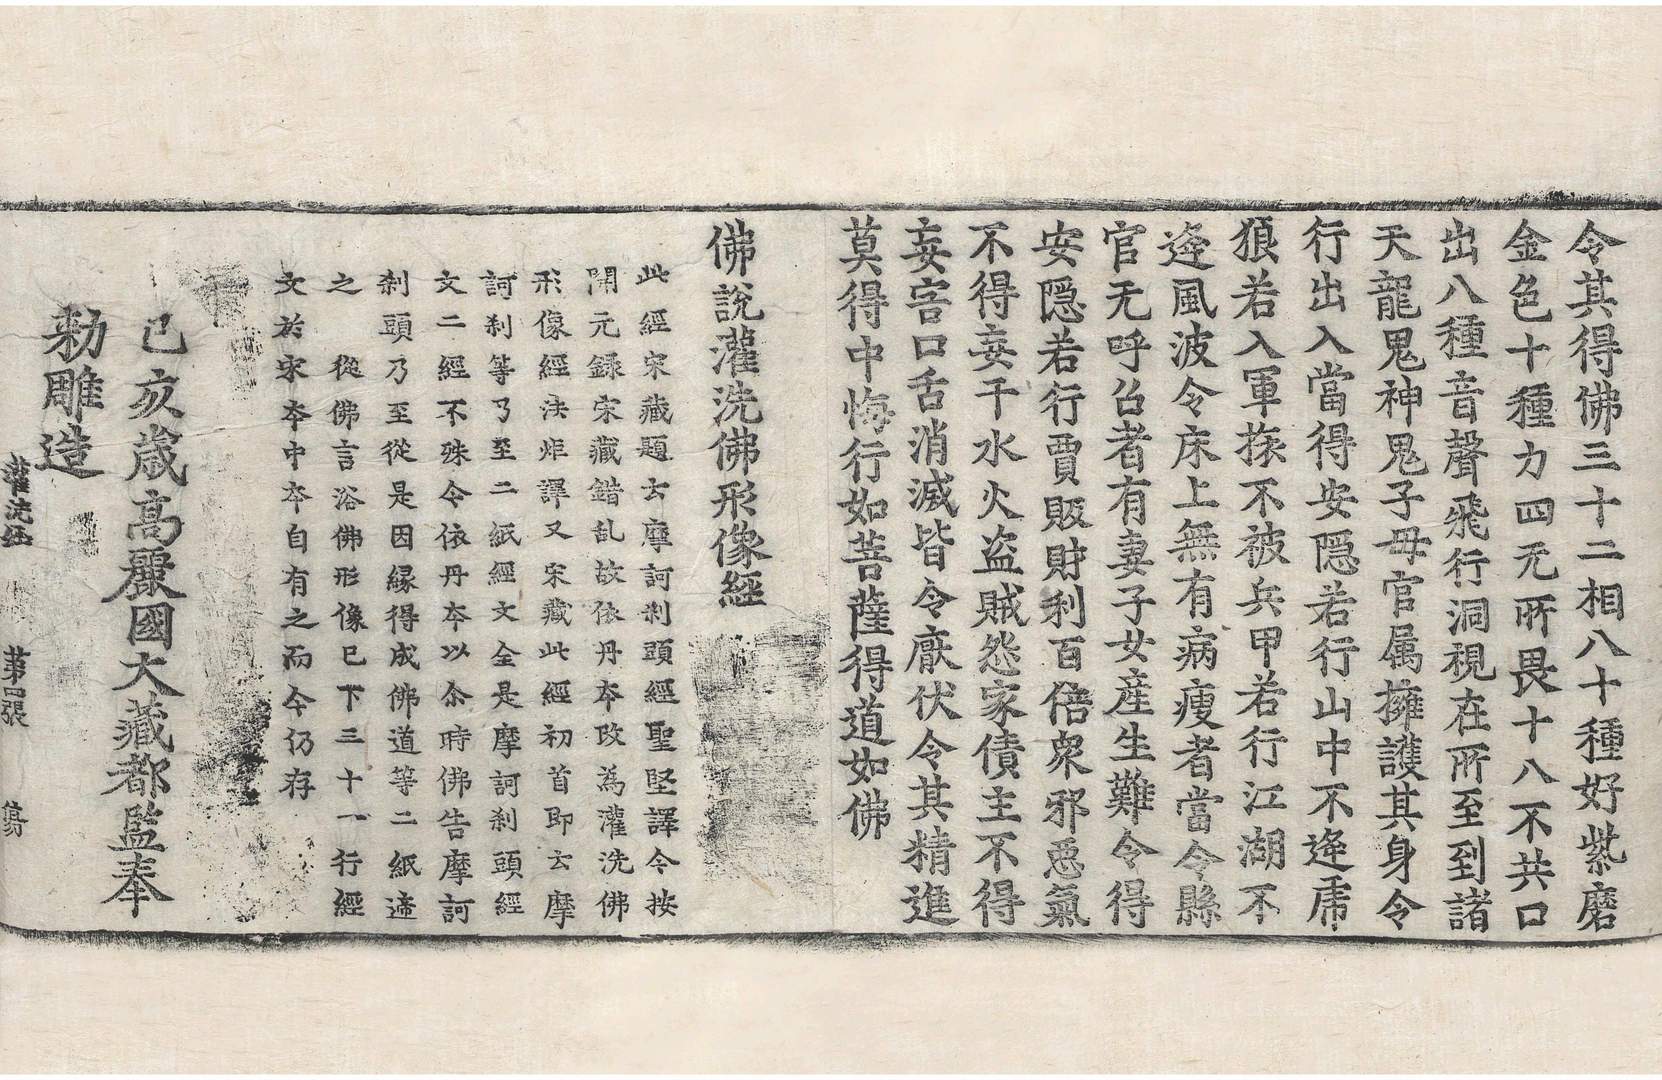 令其得佛三十二相八十種好紫磨
金色十種力四无所畏十八不共口
出八種音聲飛行洞視在所至到諸
天龍鬼神鬼子母官属擁護其身令
行出入當得安隱若行山中不逢虎
狼若入軍㧞不被兵甲若行江湖不
逢風波令床上無有病瘦者當令縣
官无呼召者有妻子女產生難令得
安隱若行賈販財利百倍衆邪惡氣
不得妄干水火盜賊怨家債主不得
妄害口舌消滅皆令厭伏令其精進
莫得中悔行如菩薩得道如佛
佛說灌洗佛形像經
此經宋藏題云摩訶刹頭經聖堅譯今按
開元録宋藏錯乱故依丹夲改為灌洗佛
形像經法炬譯又宋藏此經初首即云摩
訶刹等乃至二紙經文全是摩訶刹頭經
文二經不殊今依丹夲以尒時佛告摩訶
刹頭乃至從是因縁得成佛道等二紙遆
之　從佛言浴佛形像巳下三十一行經
文於宋夲中夲自有之而今仍存
己亥歳高麗國大藏都監奉
勑雕造
灌洗經　第四張　傷